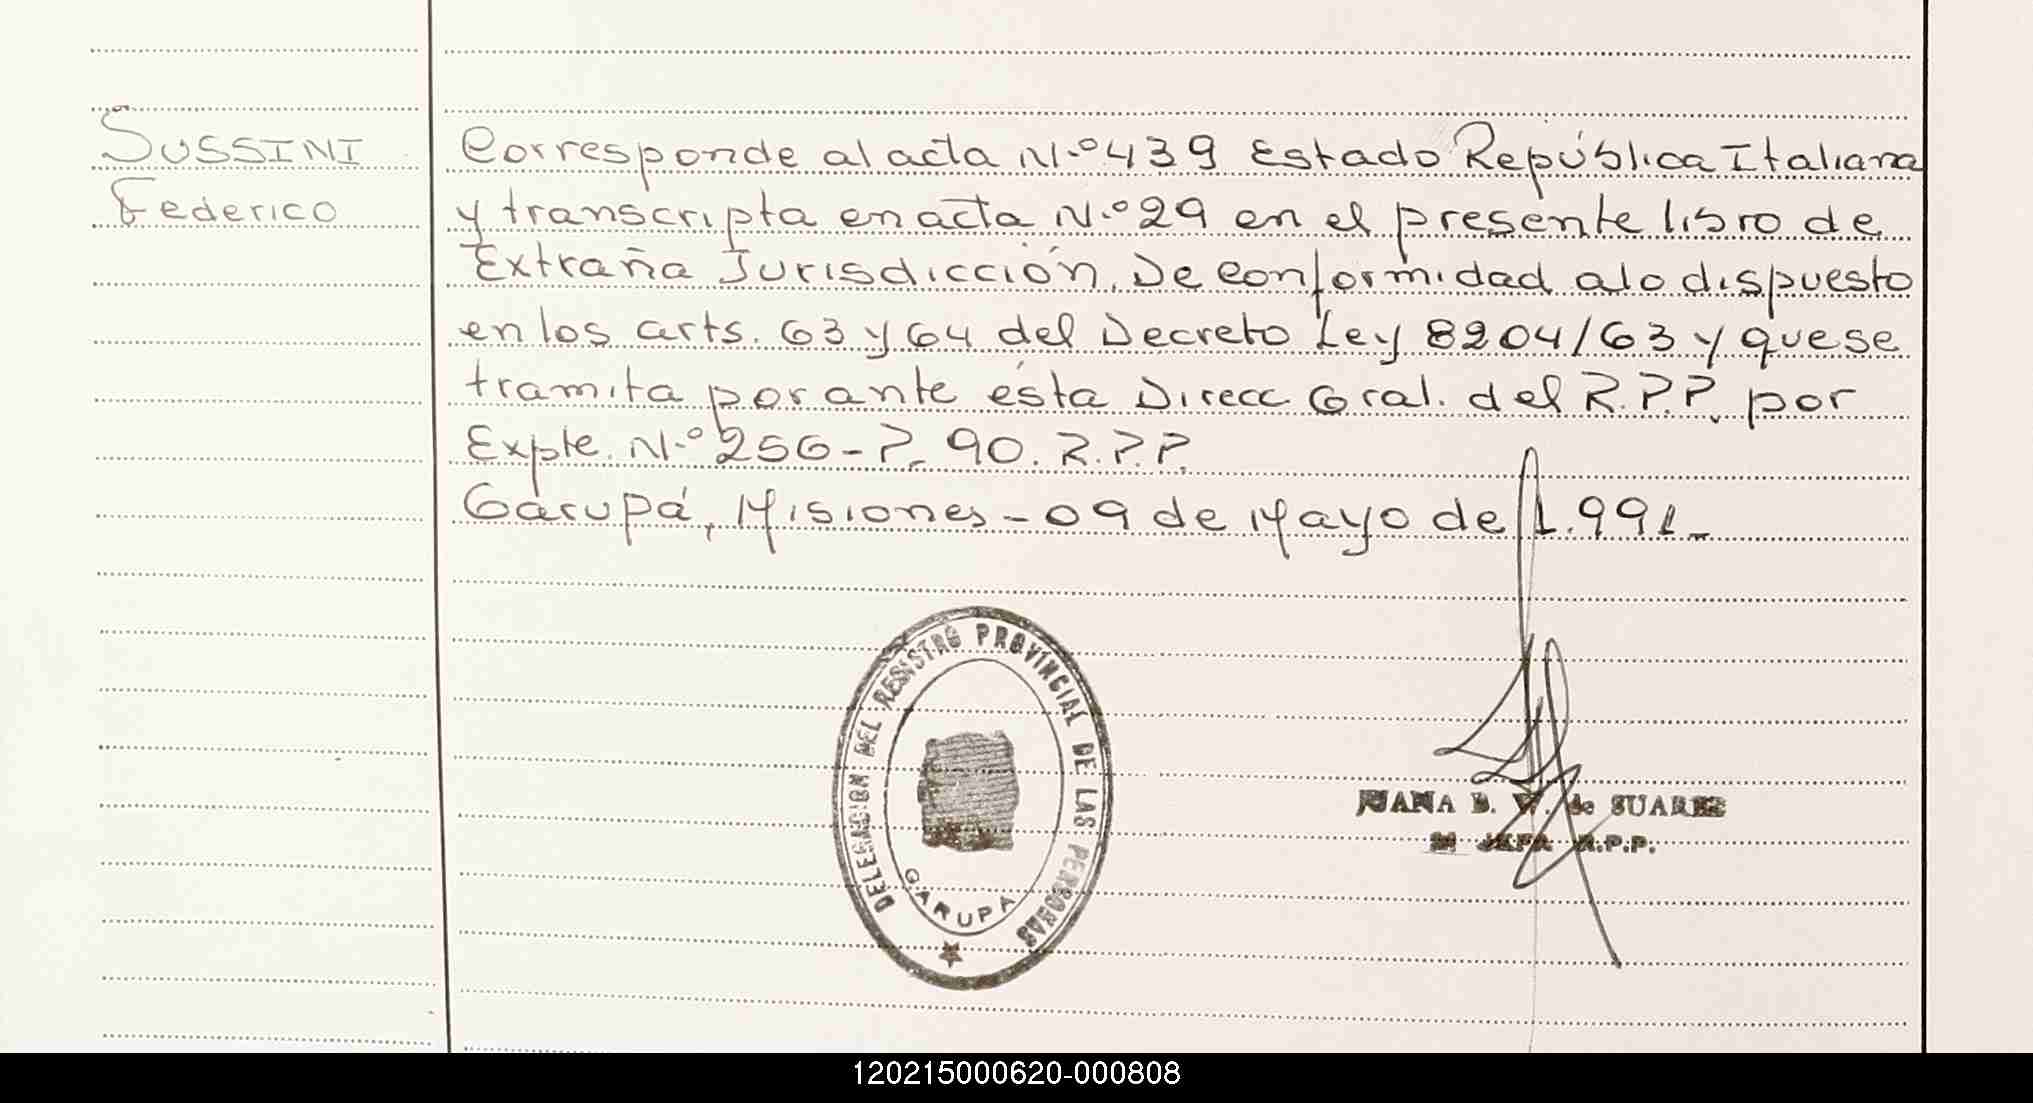 SUSSINI
Federico
Corresponde al acta N.º 439 Estado República Italiana
y transcripta en acta N.º 29 en el presente libro de
Extraña Jurisdicción. De conformidad a lo dispuesto
en los arts. 63 y 64 del Decreto Ley 8204/63 y que se
tramita por ante ésta Direcc Gral. del R.P.P. por
Expte. N.º 256-P. 90. R.P.P.
Garupá, Misiones - 09 de Mayo de 1.991_
DELEGACION DEL REGISTRO PROVINCIAL DE LAS PERSONAS
GARUPA
JUANA B. de SUAREZ
JEFA R.P.P.
120215000620-000808